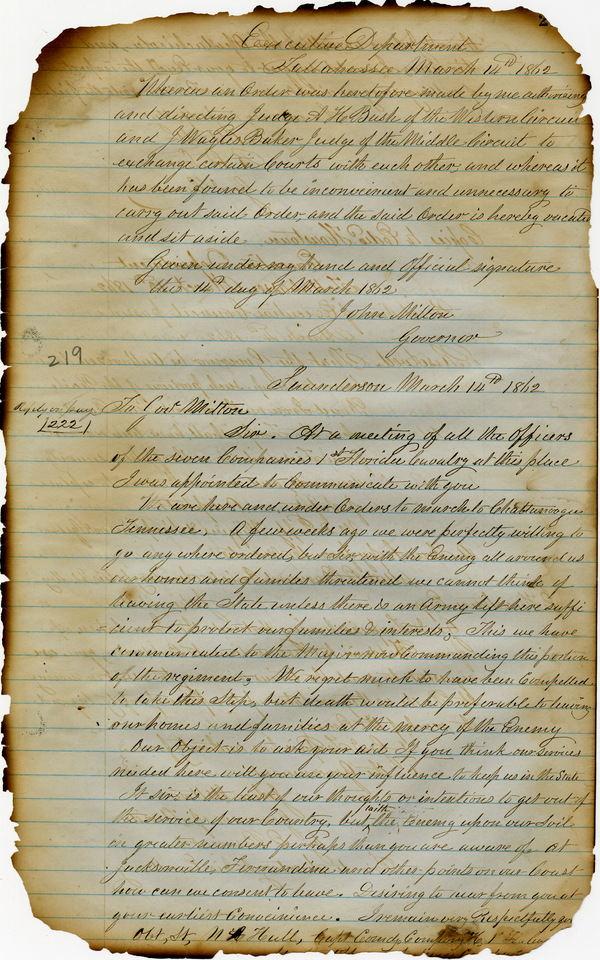 2
Executive Department
Tallahassee March 14th 1862
Whereas an Order was heretofore made by me authorising
and directing Judge A H Bush of the Western Circuit
and J Wayles Baker Judge of the Middle Circuit to
exchange certain Courts with each other, and whereas it
has been found to be inconveinent and unnecessary to
carry out said Order, and the said Order is hereby vacated
and sit aside
Given under my hand and official signature
this 14th day of March 1862.
John Milton
Governor
219
Sanderson March 14th 1862
Reply on page
1222
To Govr Milton
Sir. At a meeting of all the Officers
of the seven Companies 1st Florida Cavalry at this place
I was appointed to Communicate with you
We are here and under Orders to march to Chattanooga
Tennessee. A few weeks ago we were perfectly willing to
go any where ordered, but Sir, with the Enemy all around us
our homes and families threatened we cannot think of
leaving the State unless there is an Army left here suffi
cient to protect our families & interests, This we have
communicated to the Major now Commanding this portion
of the regiment. We regret much to have been Compelled
to take this Step, but death would be preferable to leaving
our homes and families at the mercy of the Enemy
Our Object is to ask your aid If you think our services
needed here will you use your influence to keep us in the State
It sir is the least of our thoughts or intentions to get out of
the service of our Country, but with the Enemy upon our Soil
in greater numbers perhaps than you are aware of, at
Jacksonville, Fernandina and other points on our Coast
how can we consent to leave. Desiring to hear from you at
your earliest Convenience. I remain very Respectfully yr
Obt, St, Hull, Capt Comdg Company H 1